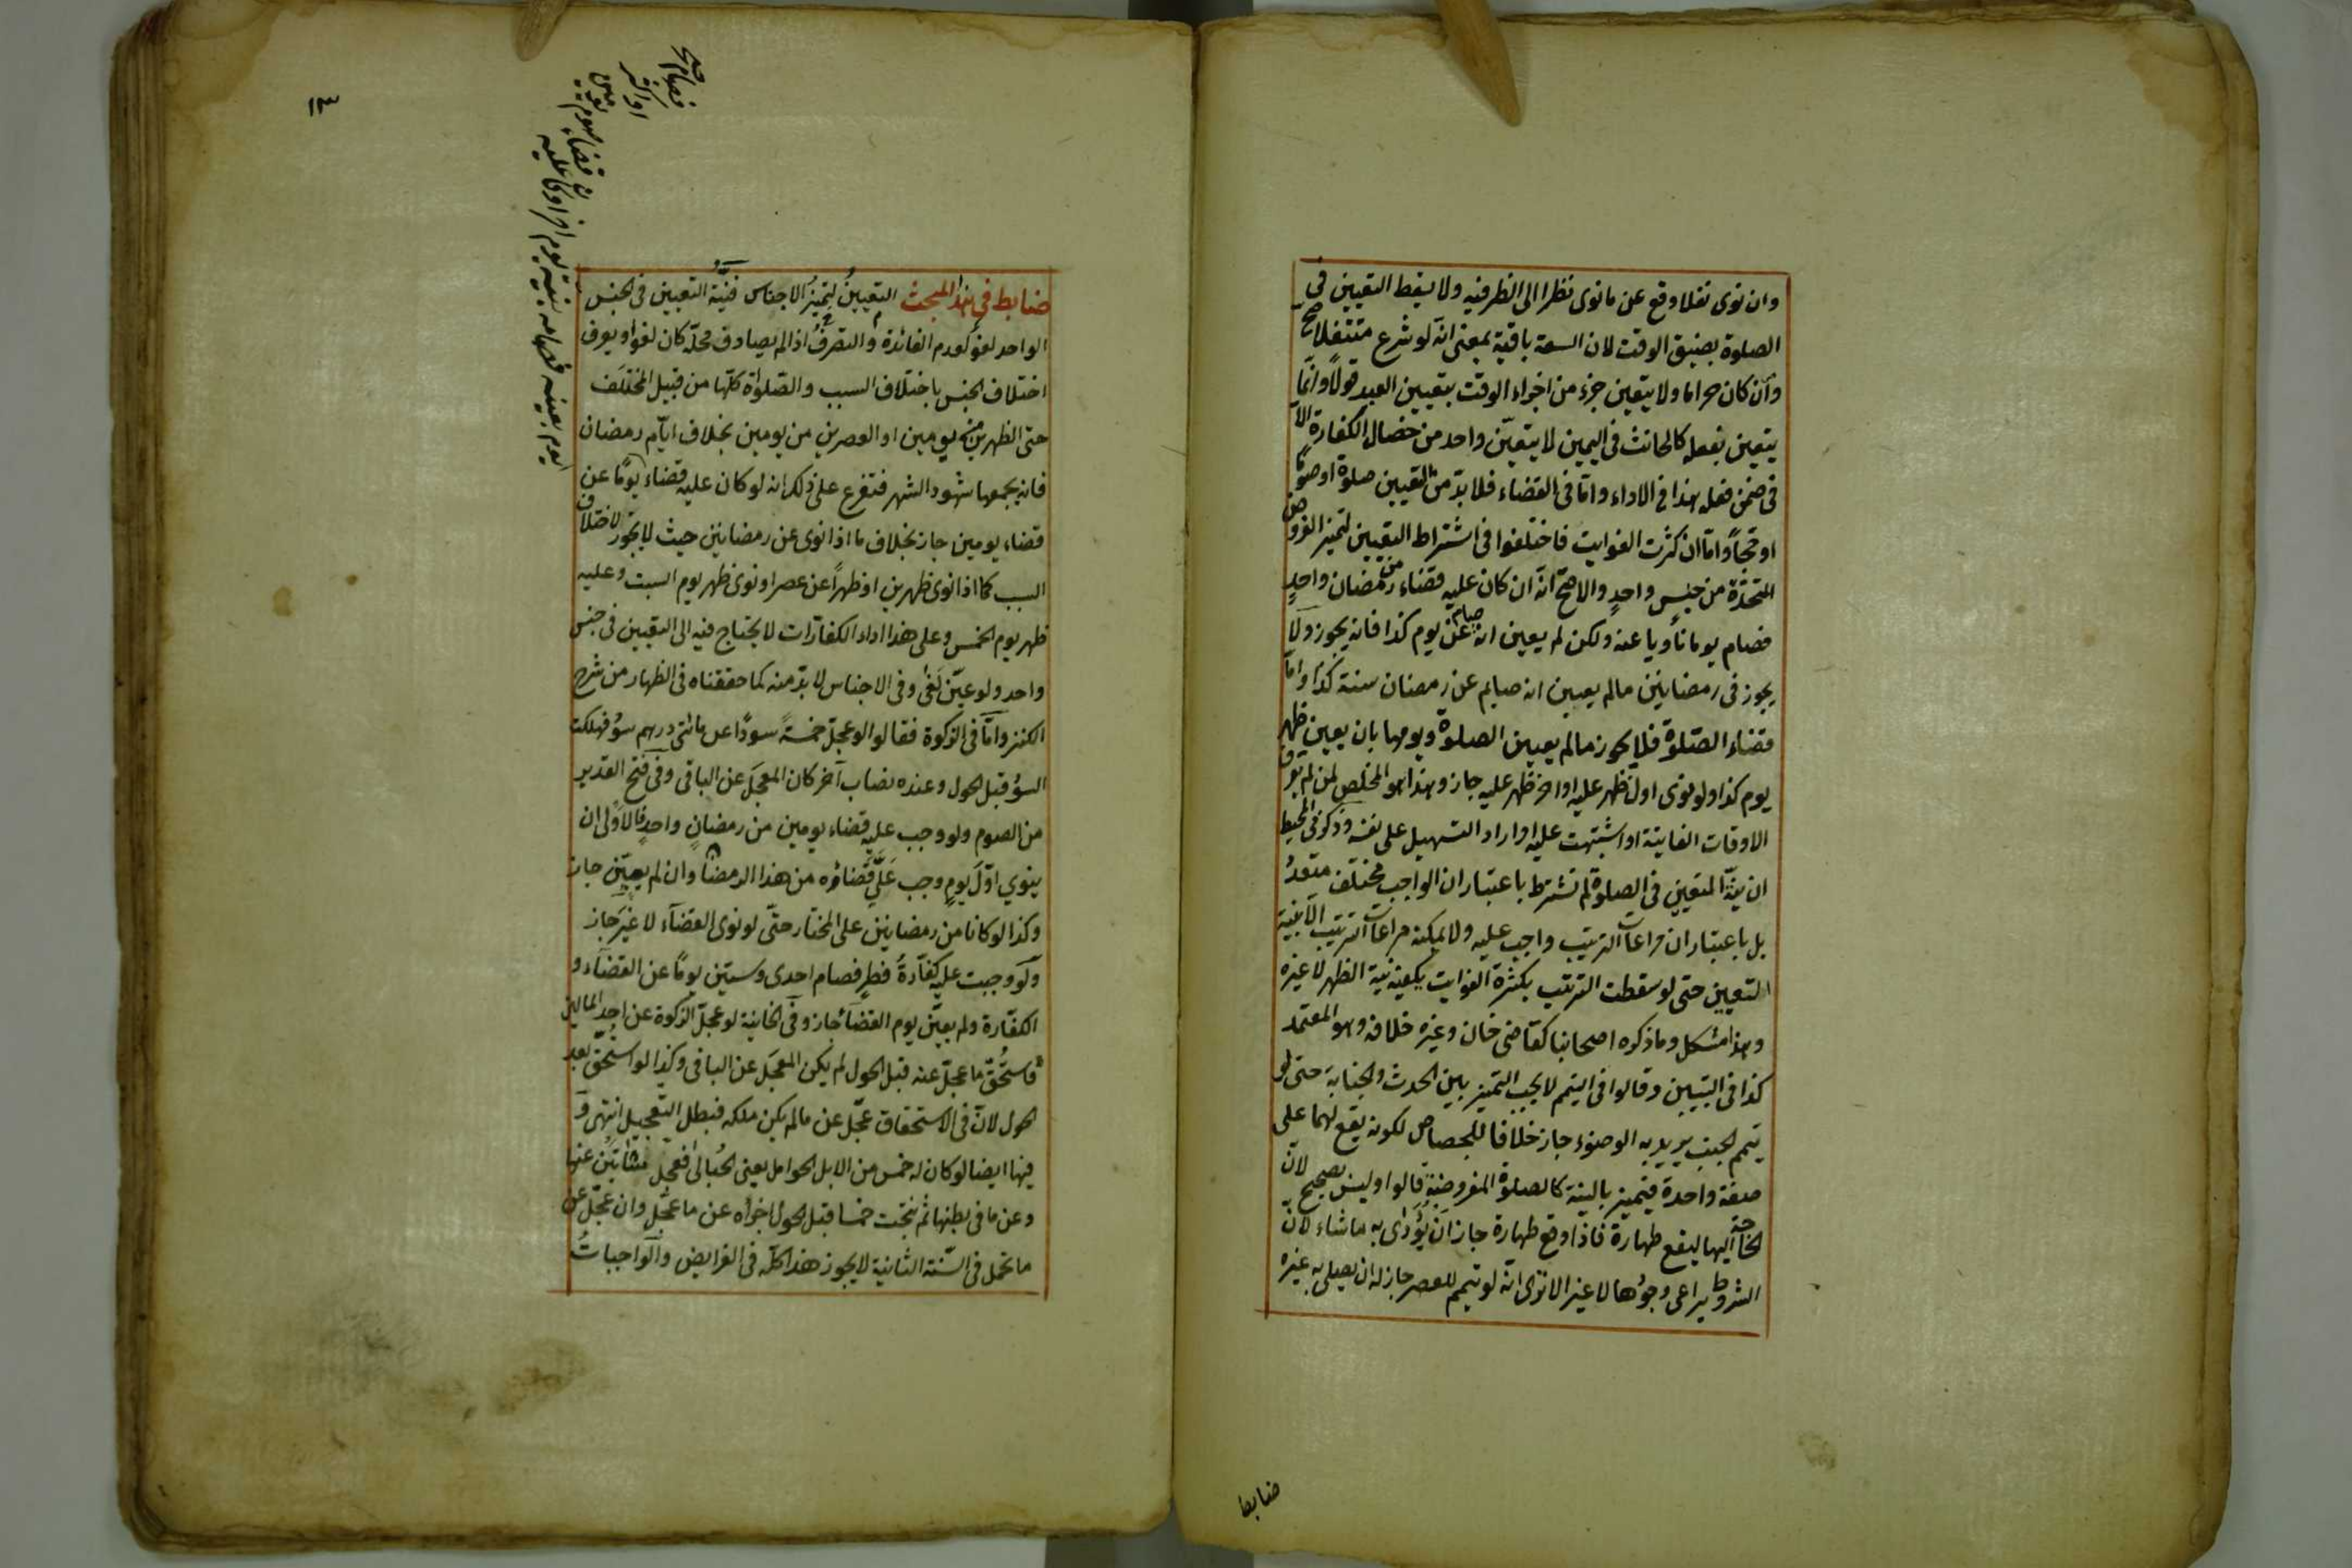 وان نوى نفلا وقع عن ما نوى نظرا الى الظرفيه ولا يسقط التعيين فى
الصلوة بضيق الوقت لان السعة باقية بمعنى انه لو شرع متنفلا صح
وان كان حراما ولا يتعين جزء من اجزاء الوقت بتعيين العبد قولا وانما
يتعين بفعله كالحانث فى اليمين لا يتعين واحد من خصال الكفارة الا
فى ضمن فعله هذا فى الاداء واما فى القضاء فلا بد من التعيين صلوة او صوما
او حجا واما ان كثرت الفوايت فاختلفوا فى اشتراط التعيين لتميز الفروض
المتحدة من جنس واحد والاصح انه ان كان عليه قضاء من رمضان واحد
فصام يوما ناويا عنه ولكن لم يعين انه صيام عن يوم كذا فانه يجوز ولا
يجوز فى رمضانين مالم يعين انه صايم عن رمضان سنة كذا واما
قضاء الصلوة فلا يجوز مالم يعين الصلوة ويومها بان يعين ظهر
يوم كذا ولو نوى اول ظهر عليه او اخر ظهر عليه جاز وهذا هو المخلص لمن لم يعرف
الاوقات الفايتة او اشتبهت عليه او اراد التسهيل على نفسه وذكر فى المحيط
ان نية التعيين فى الصلوة لم تشترط باعتبار ان الواجب مختلف متعدد
بل باعتبار ان مراعات الترتيب واجب عليه ولا يمكنه مراعات الترتيب الا بنية
التعيين حتى لو سقطت الترتيب بكثرة الفوايت يكفيه نية الظهر لا غيره
وهذا مشكل وما ذكره اصحابنا كقاضى خان وغيره خلافه وهو المعتمد
كذا فى التبيين وقالوا فى التيمم لا يجب التميز بين الحدث والجنابة حتى لو
تيمم الجنب يريد به الوضوء جاز خلافا للجصاص لكونه يقع لهما على
صفة واحدة فيتميز بالنية كالصلوة المفروضة قالوا وليس بصحيح لان
الحاجة اليها ليقع طهارة فاذا وقع طهارة جاز ان يؤدى به ما شاء لان
الشروط يراعى وجودها لا غير الا ترى انه لو تيمم للعصر جاز له ان يصلى به غيره
ضابط
١٣
ضابط فى هذا المبحث التعيين لتميز الاجناس فنية التعيين فى الجنس
الواحد لغو لعدم الفائدة والتصرف اذا لم يصادف محله كان لغوا ويعرف
اختلاف الجنس باختلاف السبب والصلواة كلها من قبيل المختلف
حتى الظهرين من يومين او العصرين من يومين بخلاف ايام رمضان
فانه يجمعها شهود الشهر فتفرع على ذلك انه لو كان عليه قضاء يوما عن
قضاء يومين جاز بخلاف ما اذا نوى عن رمضانين حيث لا يجوز لاختلاف
السبب كما اذا نوى ظهرين او ظهرا عن عصر او نوى ظهر يوم السبت وعليه
ظهر يوم الخمس وعلى هذا اداء الكفارات لا يحتاج فيه الى التعيين فى جنس
واحد ولو عين لغى وفى الاجناس لا بد منه كما حققناه فى الظهار من شرح
الكنز واما فى الزكوة فقالوا لو عجل خمسة سودا عن مائتى درهم سود فهلكت
السود قبل الحول وعنده نصاب آخر كان المعجل عن الباقى وفى فتح القدير
من الصوم ولو وجب عليه قضاء يومين من رمضان واحد فالاولى ان
ينوي اول يوم وجب على قضاؤه من هذا الرمضان وان لم يعين جاز
وكذا لو كانا من رمضانين على المختار حتى لو نوى القضاء لا غير جاز
ولو وجبت عليه كفارة فطر فصام احدى وستين يوما عن القضاء و
الكفارة ولم يعين يوم القضاء جاز وفى الخانية لو عجل الزكوة عن احد المالين
فاستحق ما عجل عنه قبل الحول لم يكن المعجل عن الباقى وكذا لو استحق بعد
الحول لان فى الاستحقاق عجل عن مالم يكن ملكه فبطل التعجيل انتهى و
فيها ايضا لو كان له خمس من الابل الحوامل يعنى الحبالى فعجل شاتين عنها
وعن ما فى بطنها ثم نتجت خمسا قبل الحول اجزاه عن ما عجل وان عجل عن
ما تحمل فى السنة الثانية لا يجوز هذا كله فى الفرايض والواجبات